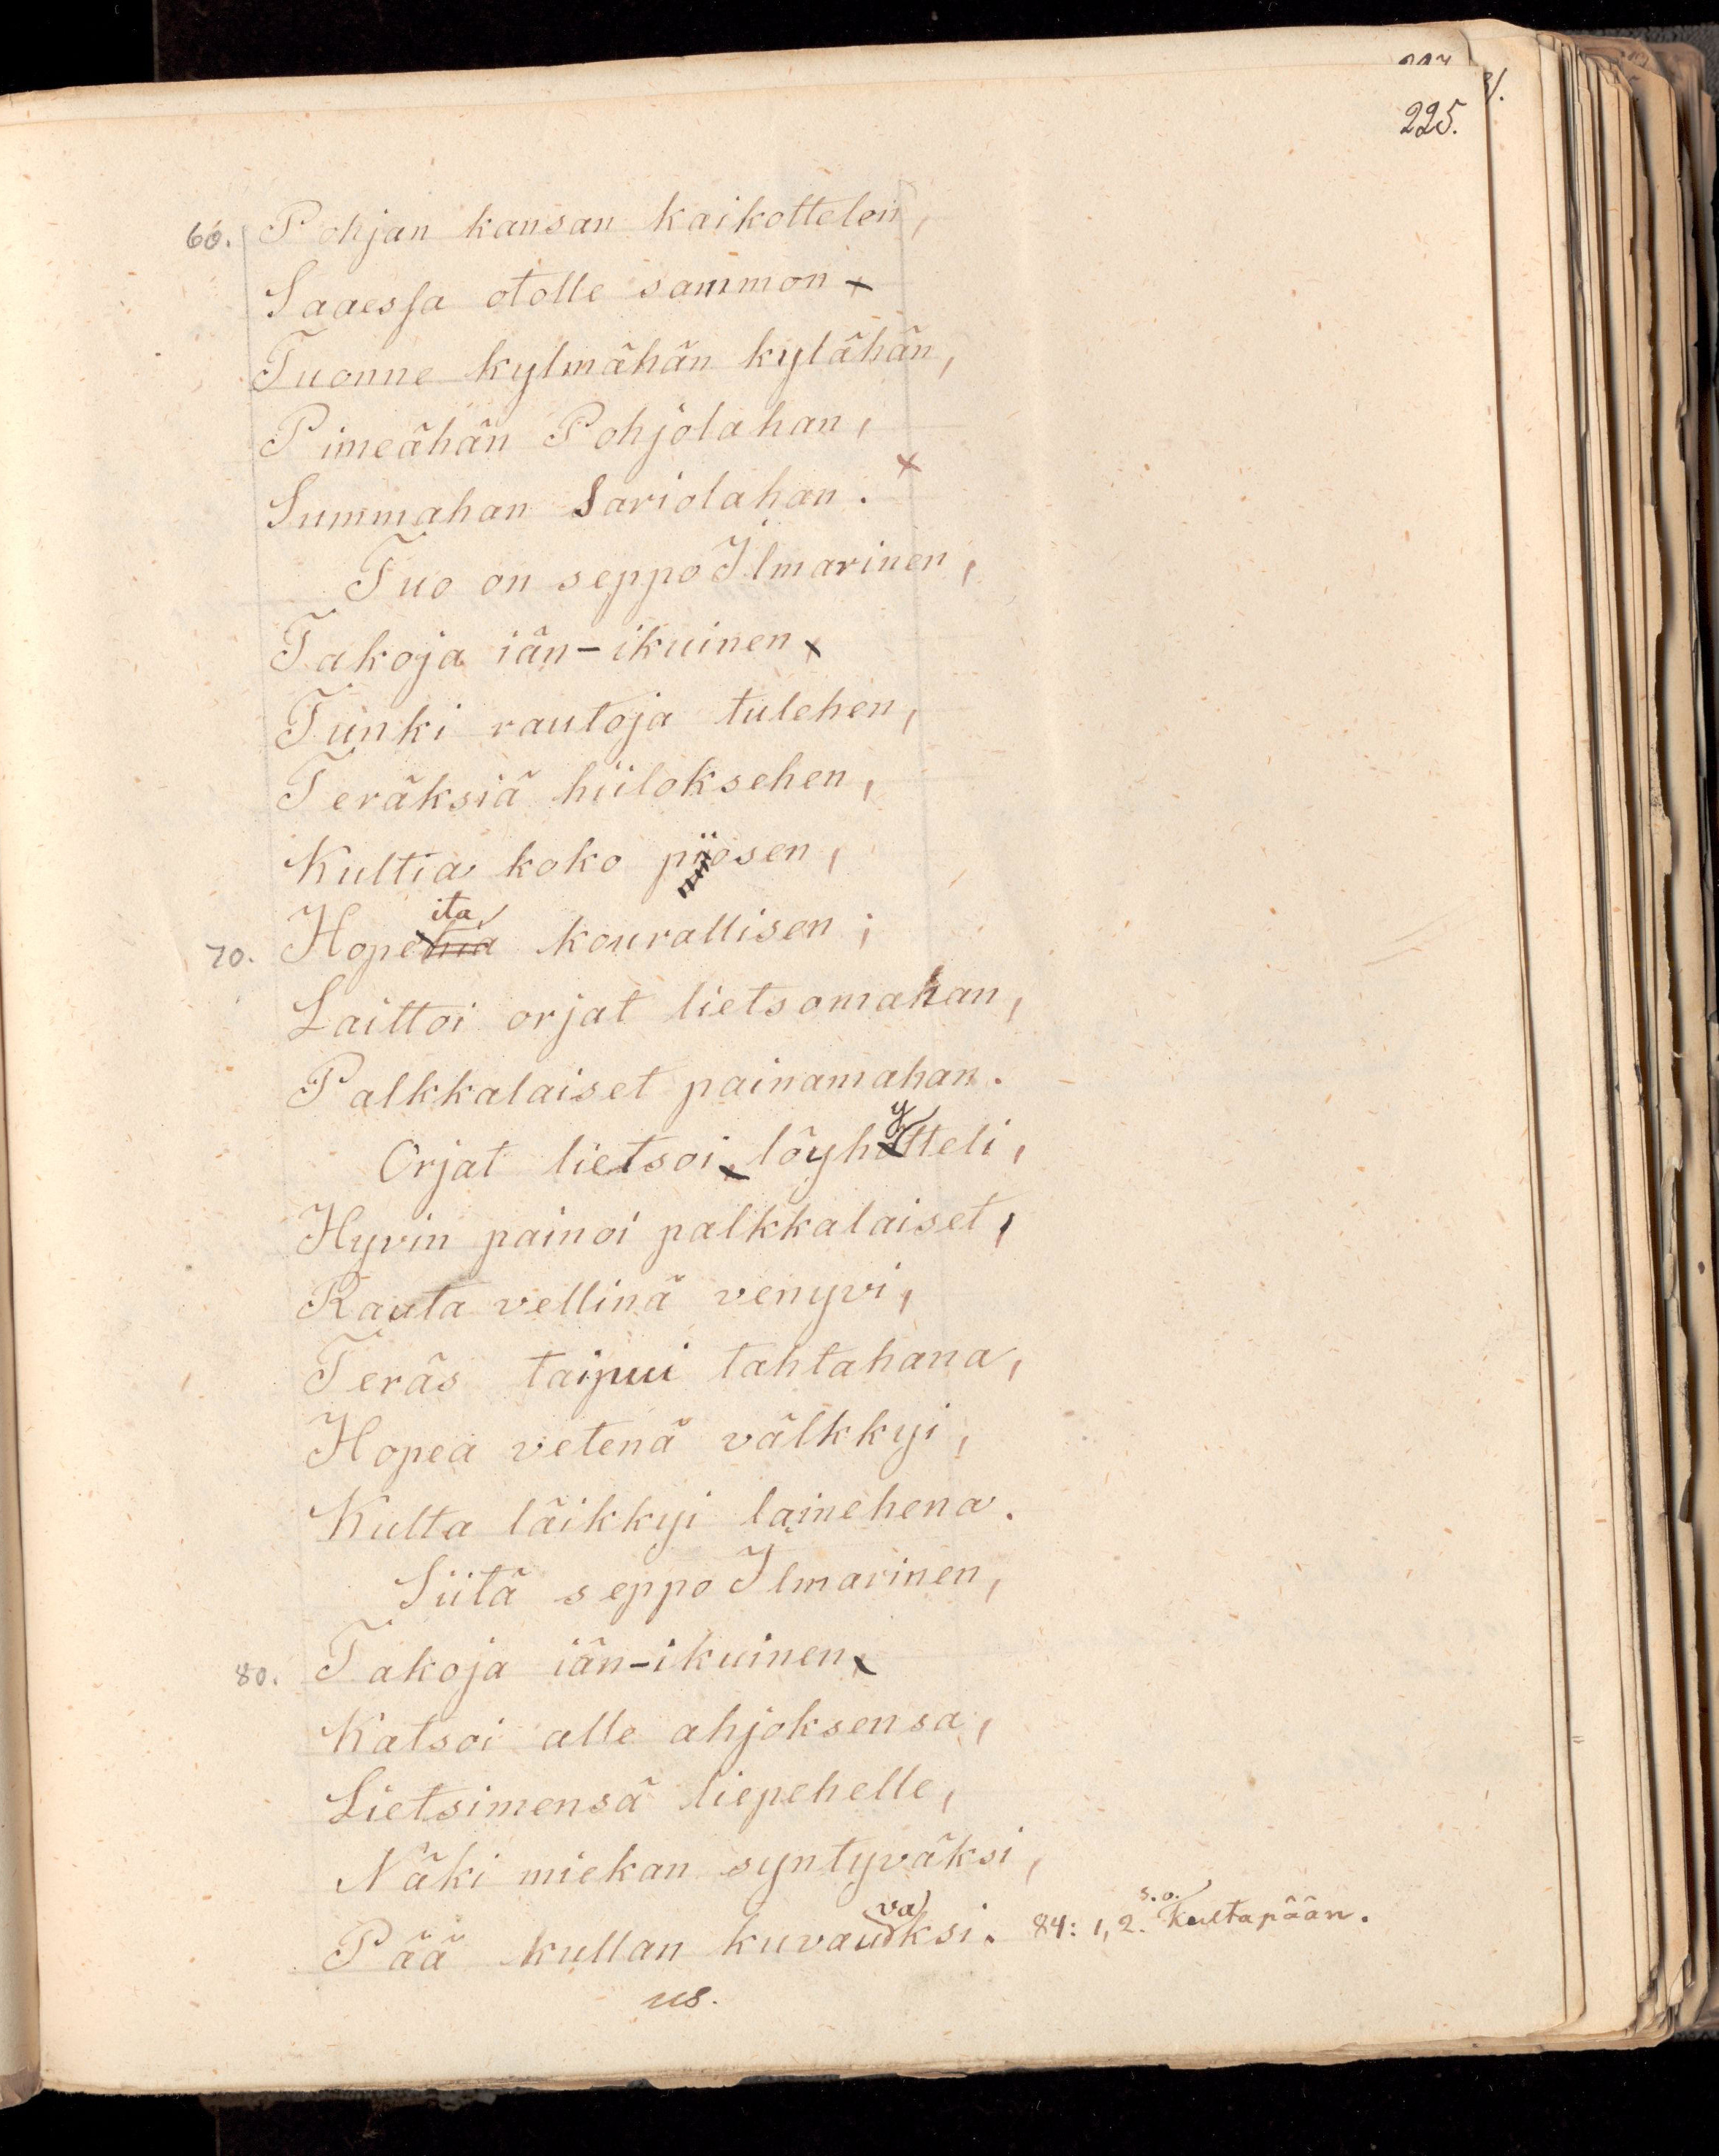 225.
60. Pohjan kansan kaikottelen,
Saaessa otolle sammon
Tuonne kylmähän kylähän,
Pimeähän Pohjolahan,
Summahan Sariolahan.
Tuo on seppo Ilmarinen,
Takoja iän-ikuinen
Tunki rautoja tulehen,
Teräksiä hiiloksehen,
Kultia koko piiosen,
ita
70. Hopehia kourallisen;
Laittoi orjat lietsomahan,
Palkkalaiset painamahan.
y
Orjat lietsoi, löyhötteli,
Hyvin painoi palkkalaiset,
Rauta vellinä venyvi,
Teräs taipui tahtahana,
Hopea vetenä välkkyi,
Kulta läikkyi lainehena.
Siitä seppo Ilmarinen,
80. Takoja iän-ikuinen
Katsoi alle ahjoksensa,
Lietsimensä liepehelle,
Näki miekan syntyväksi,
va s.o.
Pää kullan kuvauksi. 84: 1, 2. Kultapään.
us.